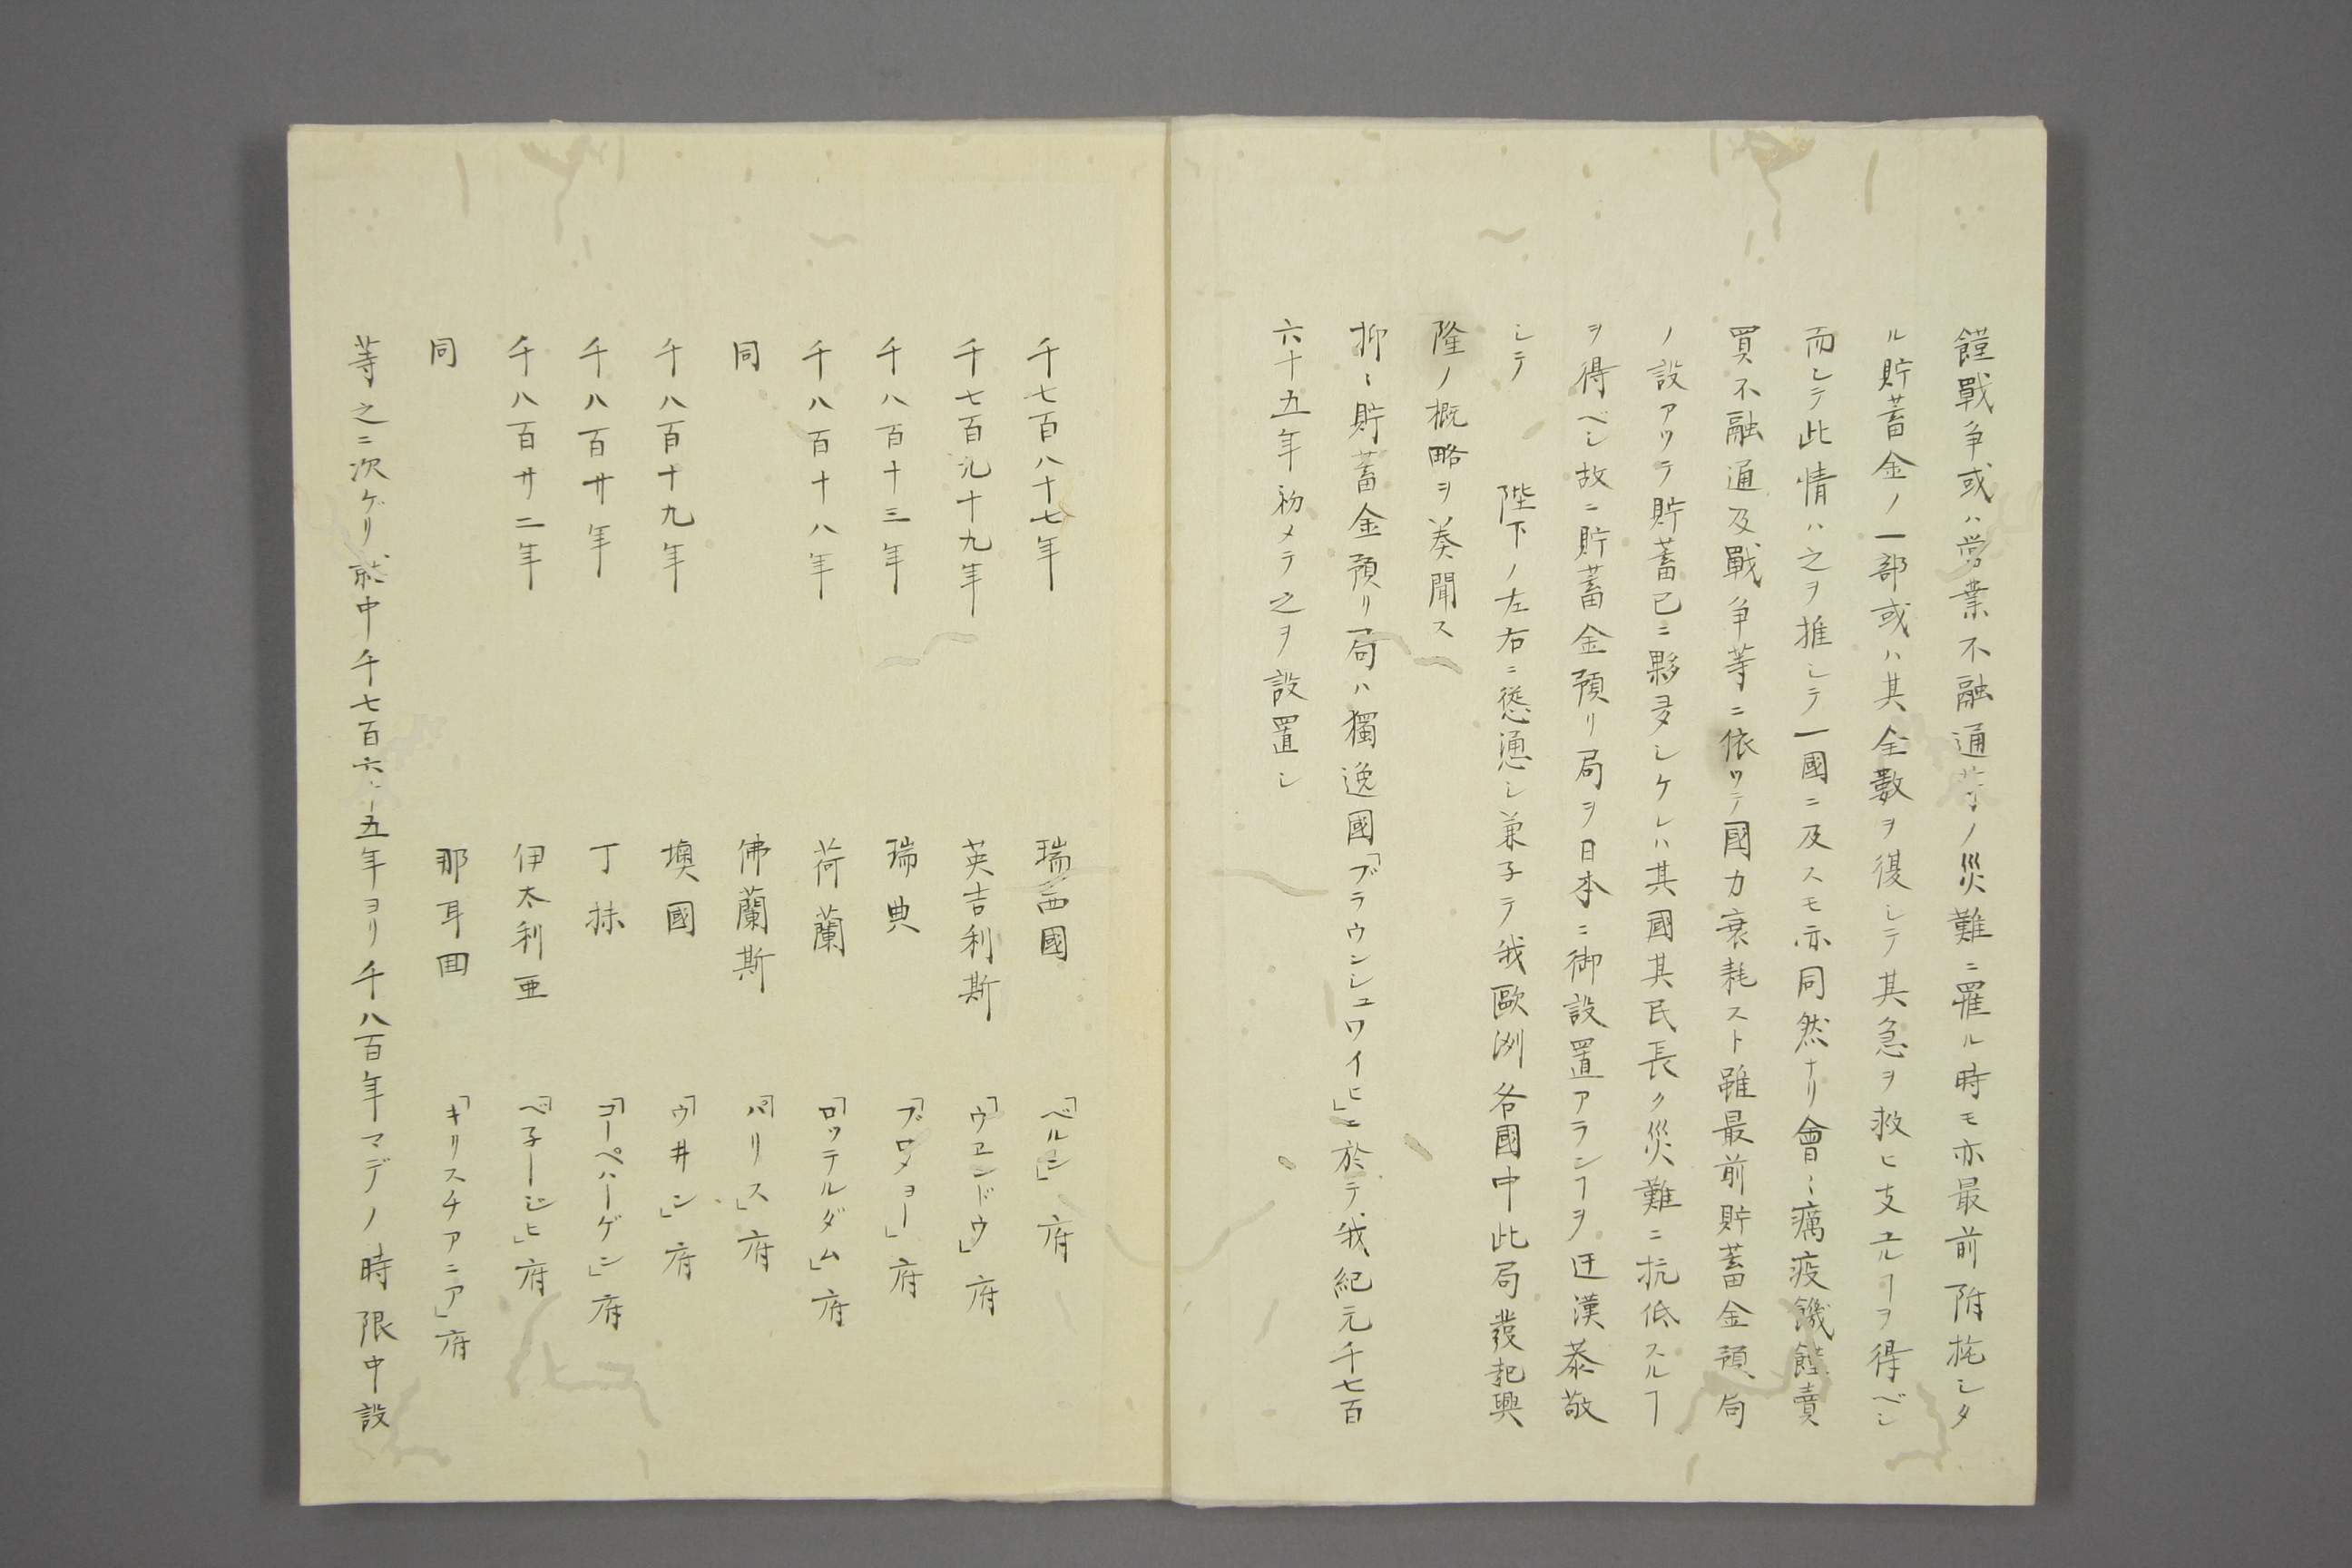 饉戰争或ハ営業不融通等ノ災難ニ罹ル時モ亦最前附托シタ
ル貯蓄金ノ一部或ハ其全數ヲ復シテ其急ヲ救ヒ支ユルヿヲ得ベシ
而シテ此情ハ之ヲ推シテ一國ニ及スモ亦同然ナリ會〻癘疫饑饉賣
買不融通及戰争等ニ依ッテ國力衰耗スト雖最前貯蓄金預局
ノ設アッテ貯蓄已ニ夥多シケレハ其國其民長ク災難ニ抗低スルヿ
ヲ得ベシ故ニ貯蓄金預リ局ヲ日本ニ御設置アランヿヲ迂漢恭敬
シテ 陛下ノ左右ニ慫慂シ兼子テ我歐洲各國中此局發起興
隆ノ概略ヲ奏聞ス
抑〻貯蓄金預リ局ハ獨逸國「ブラウンシュワイヒ」ニ於テ我紀元千七百
六十五年初メテ之ヲ設置シ
千七百八十七年 瑞西國 「ベルン」府
千七百九十九年 英吉利斯 「ウエンドウ」府
千八百十三年 瑞典 「ブロメョー」府
千八百十八年 荷蘭 「ロッテルダム」府
同 佛蘭斯 「パリス」府
千八百十九年 墺國 「ウ井ン」府
千八百廿年 丁抹 「コーペハーゲン」府
千八百廿二年 伊太利亜 「ベ子ージヒ」府
同 那耳囬 「キリスチアニア」府
等之ニ次ゲリ就中千七百六十五年ヨリ千八百年マデノ時限中設